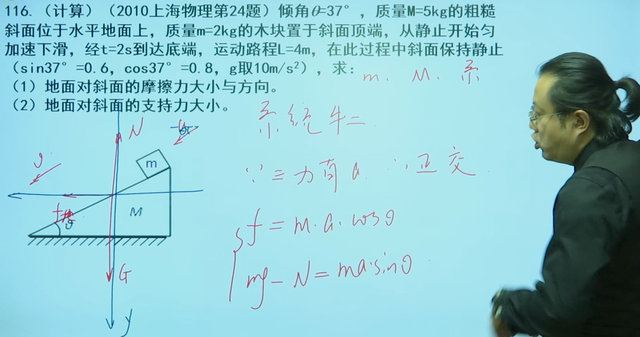 116.（计算）（2010上海物理第24题）倾角θ=37°，质量M=5kg的粗糙
斜面位于水平地面上，质量m=2kg的木块置于斜面顶端，从静止开始匀
加速下滑，经t=2s到达底端，运动路程L=4m，在此过程中斜面保持静止
（sin37°=0.6，cos37°=0.8，g取10m/s²），求：
（1）地面对斜面的摩擦力大小与方向。
（2）地面对斜面的支持力大小。
m. M. 系
系统牛二
∵ 三力有a ∴ 正交
f = m·a·cosθ
mg - N = ma·sinθ
N
m
M
f
θ
G
y